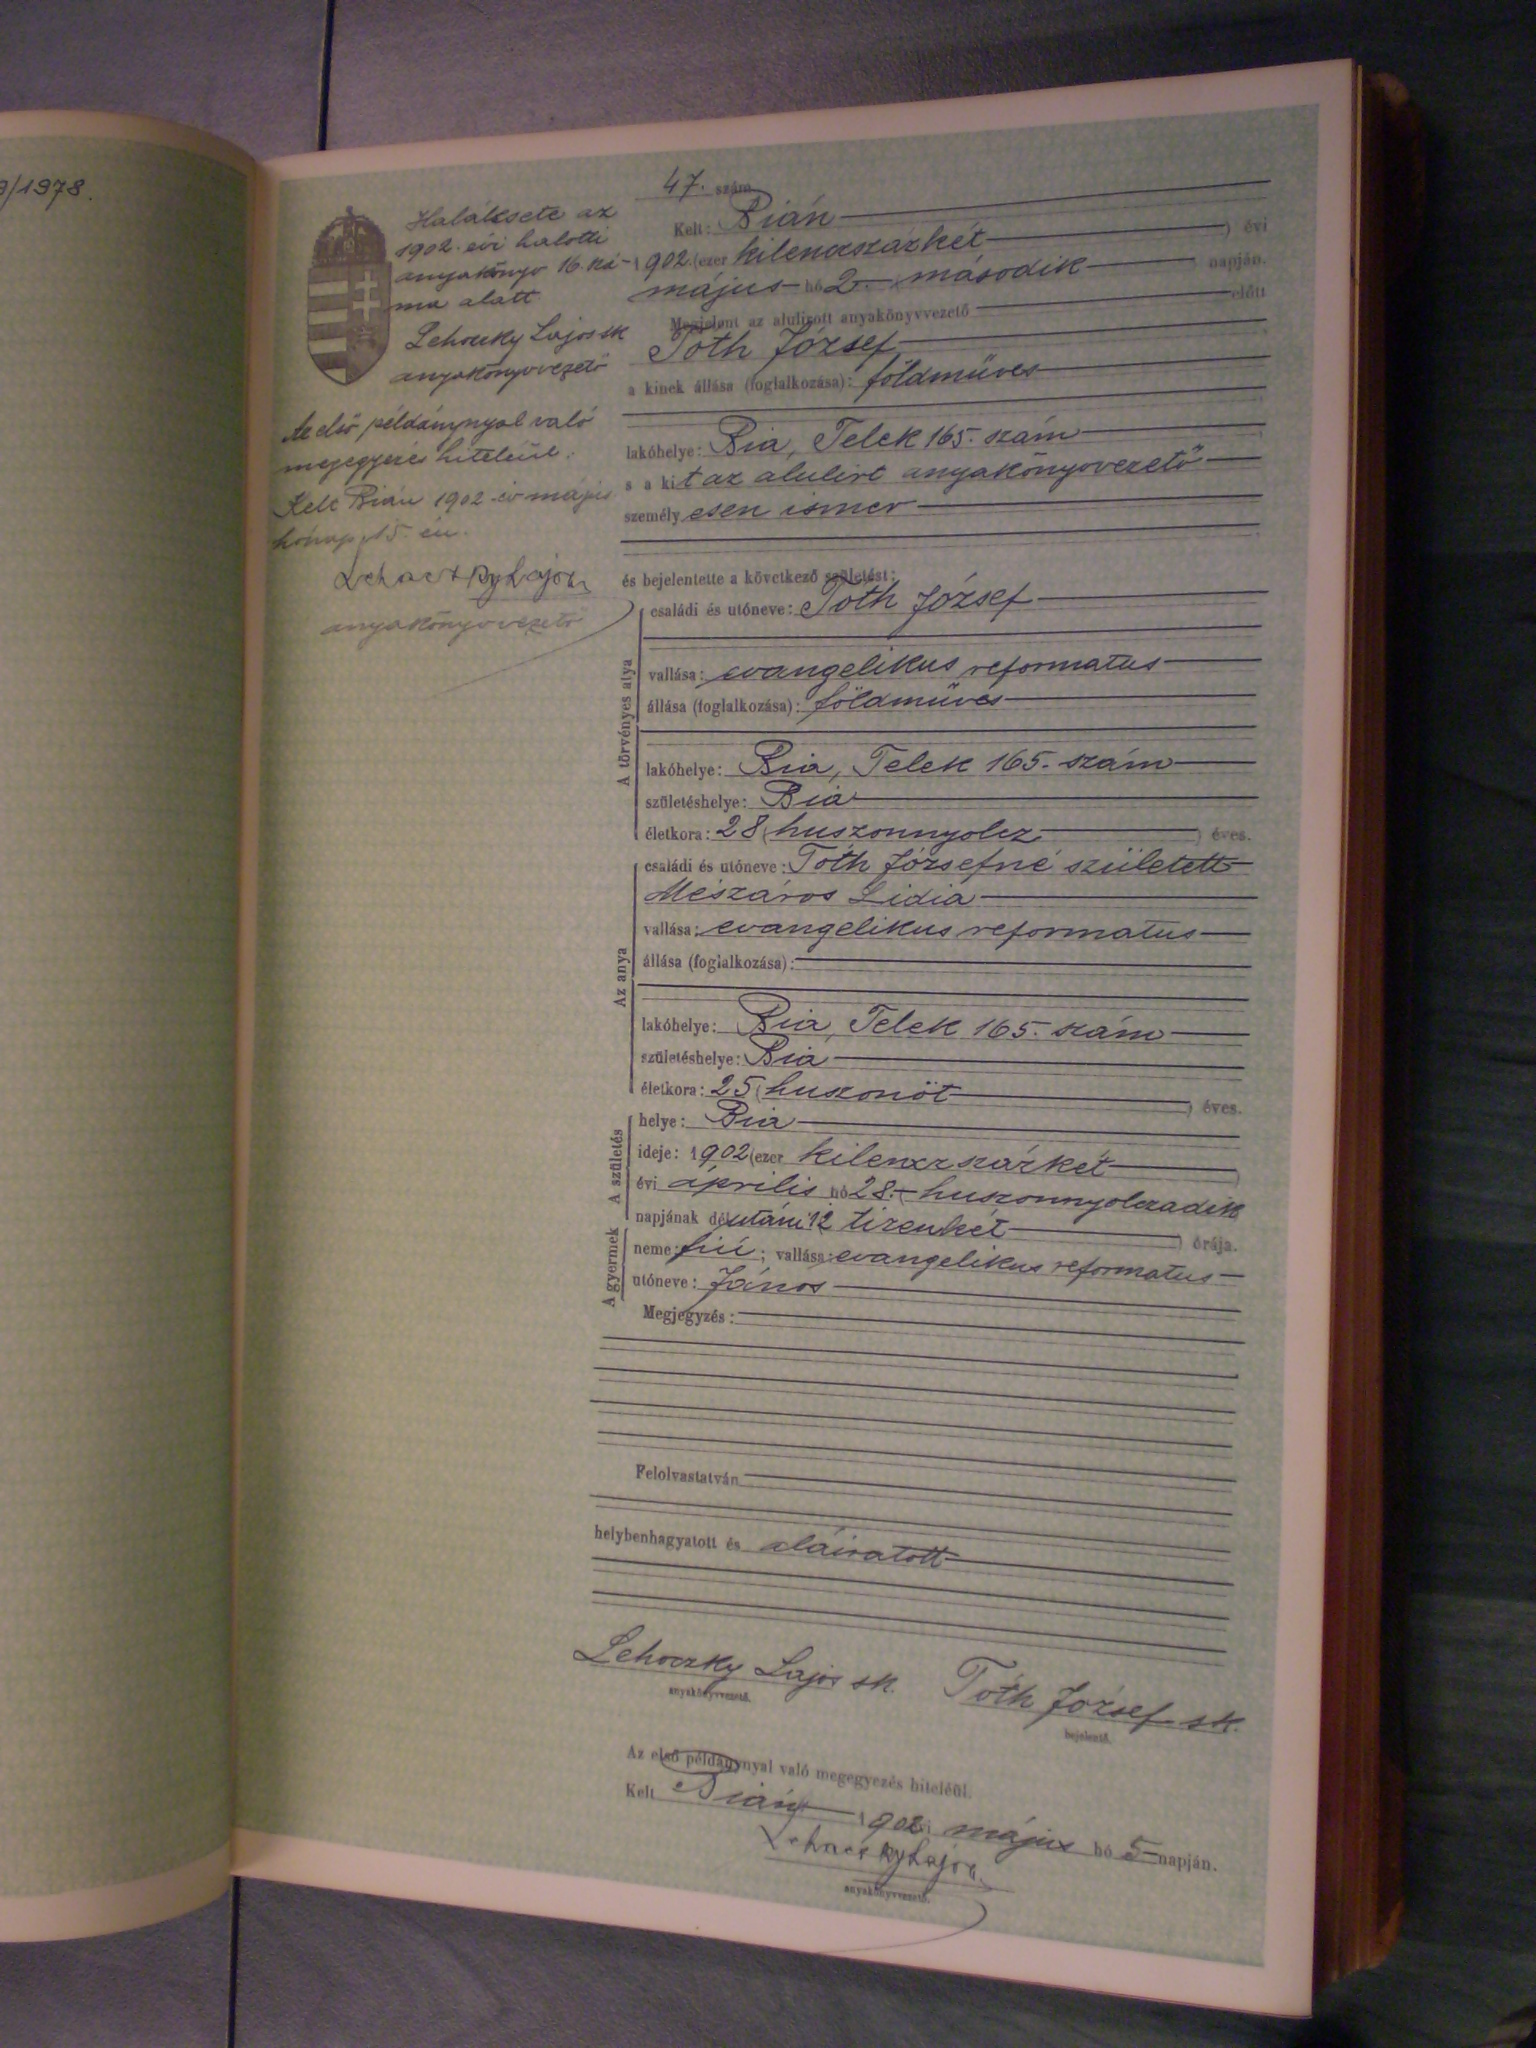 9/1978.
Halálesete az
1902. évi halotti
anyakönyv 16. szá-
ma alatt
Lehoczky Lajos sk
anyakönyvvezető
Az első példánynyal való
megegyezés hiteléül:
Kelt Bián 1902 év május
hónap 15. én.
Lehoczky Lajos
anyakönyvvezető
47. szám
Kelt: Bián
1902. (ezer kilenczszázkét ) évi
május hó 2. (második ) napján.
Megjelent az alulírott anyakönyvvezető előtt
Tóth József
a kinek állása (foglalkozása): földműves
lakóhelye: Bia, Telek 165. szám
s a kit az alulirt anyakönyvvezető
személyesen ismer
és bejelentette a következő születést:
A törvényes atya
családi és utóneve: Tóth József
vallása: evangelikus reformatus
állása (foglalkozása): földműves
lakóhelye: Bia, Telek 165. szám
születéshelye: Bia
életkora: 28 (huszonnyolcz ) éves.
Az anya
családi és utóneve: Tóth Józsefné született
Mészáros Lidia
vallása: evangelikus reformatus
állása (foglalkozása):
lakóhelye: Bia, Telek 165. szám
születéshelye: Bia
életkora: 25 (huszonöt ) éves.
A születés
helye: Bia
ideje: 1902 (ezer kilenczszázkét )
évi április hó 28. (huszonnyolczadik
napjának délutáni 12 (tizenkét ) órája.
A gyermek
neme: fiú; vallása: evangelikus reformatus
utóneve: János
Megjegyzés:
Felolvastatván
helybenhagyatott és aláiratott
Lehoczky Lajos sk. Tóth József sk.
anyakönyvvezető. bejelentő.
Az első példánynyal való megegyezés hiteléül.
Kelt Bián 1902 május hó 5 napján.
Lehoczky Lajos
anyakönyvvezető.